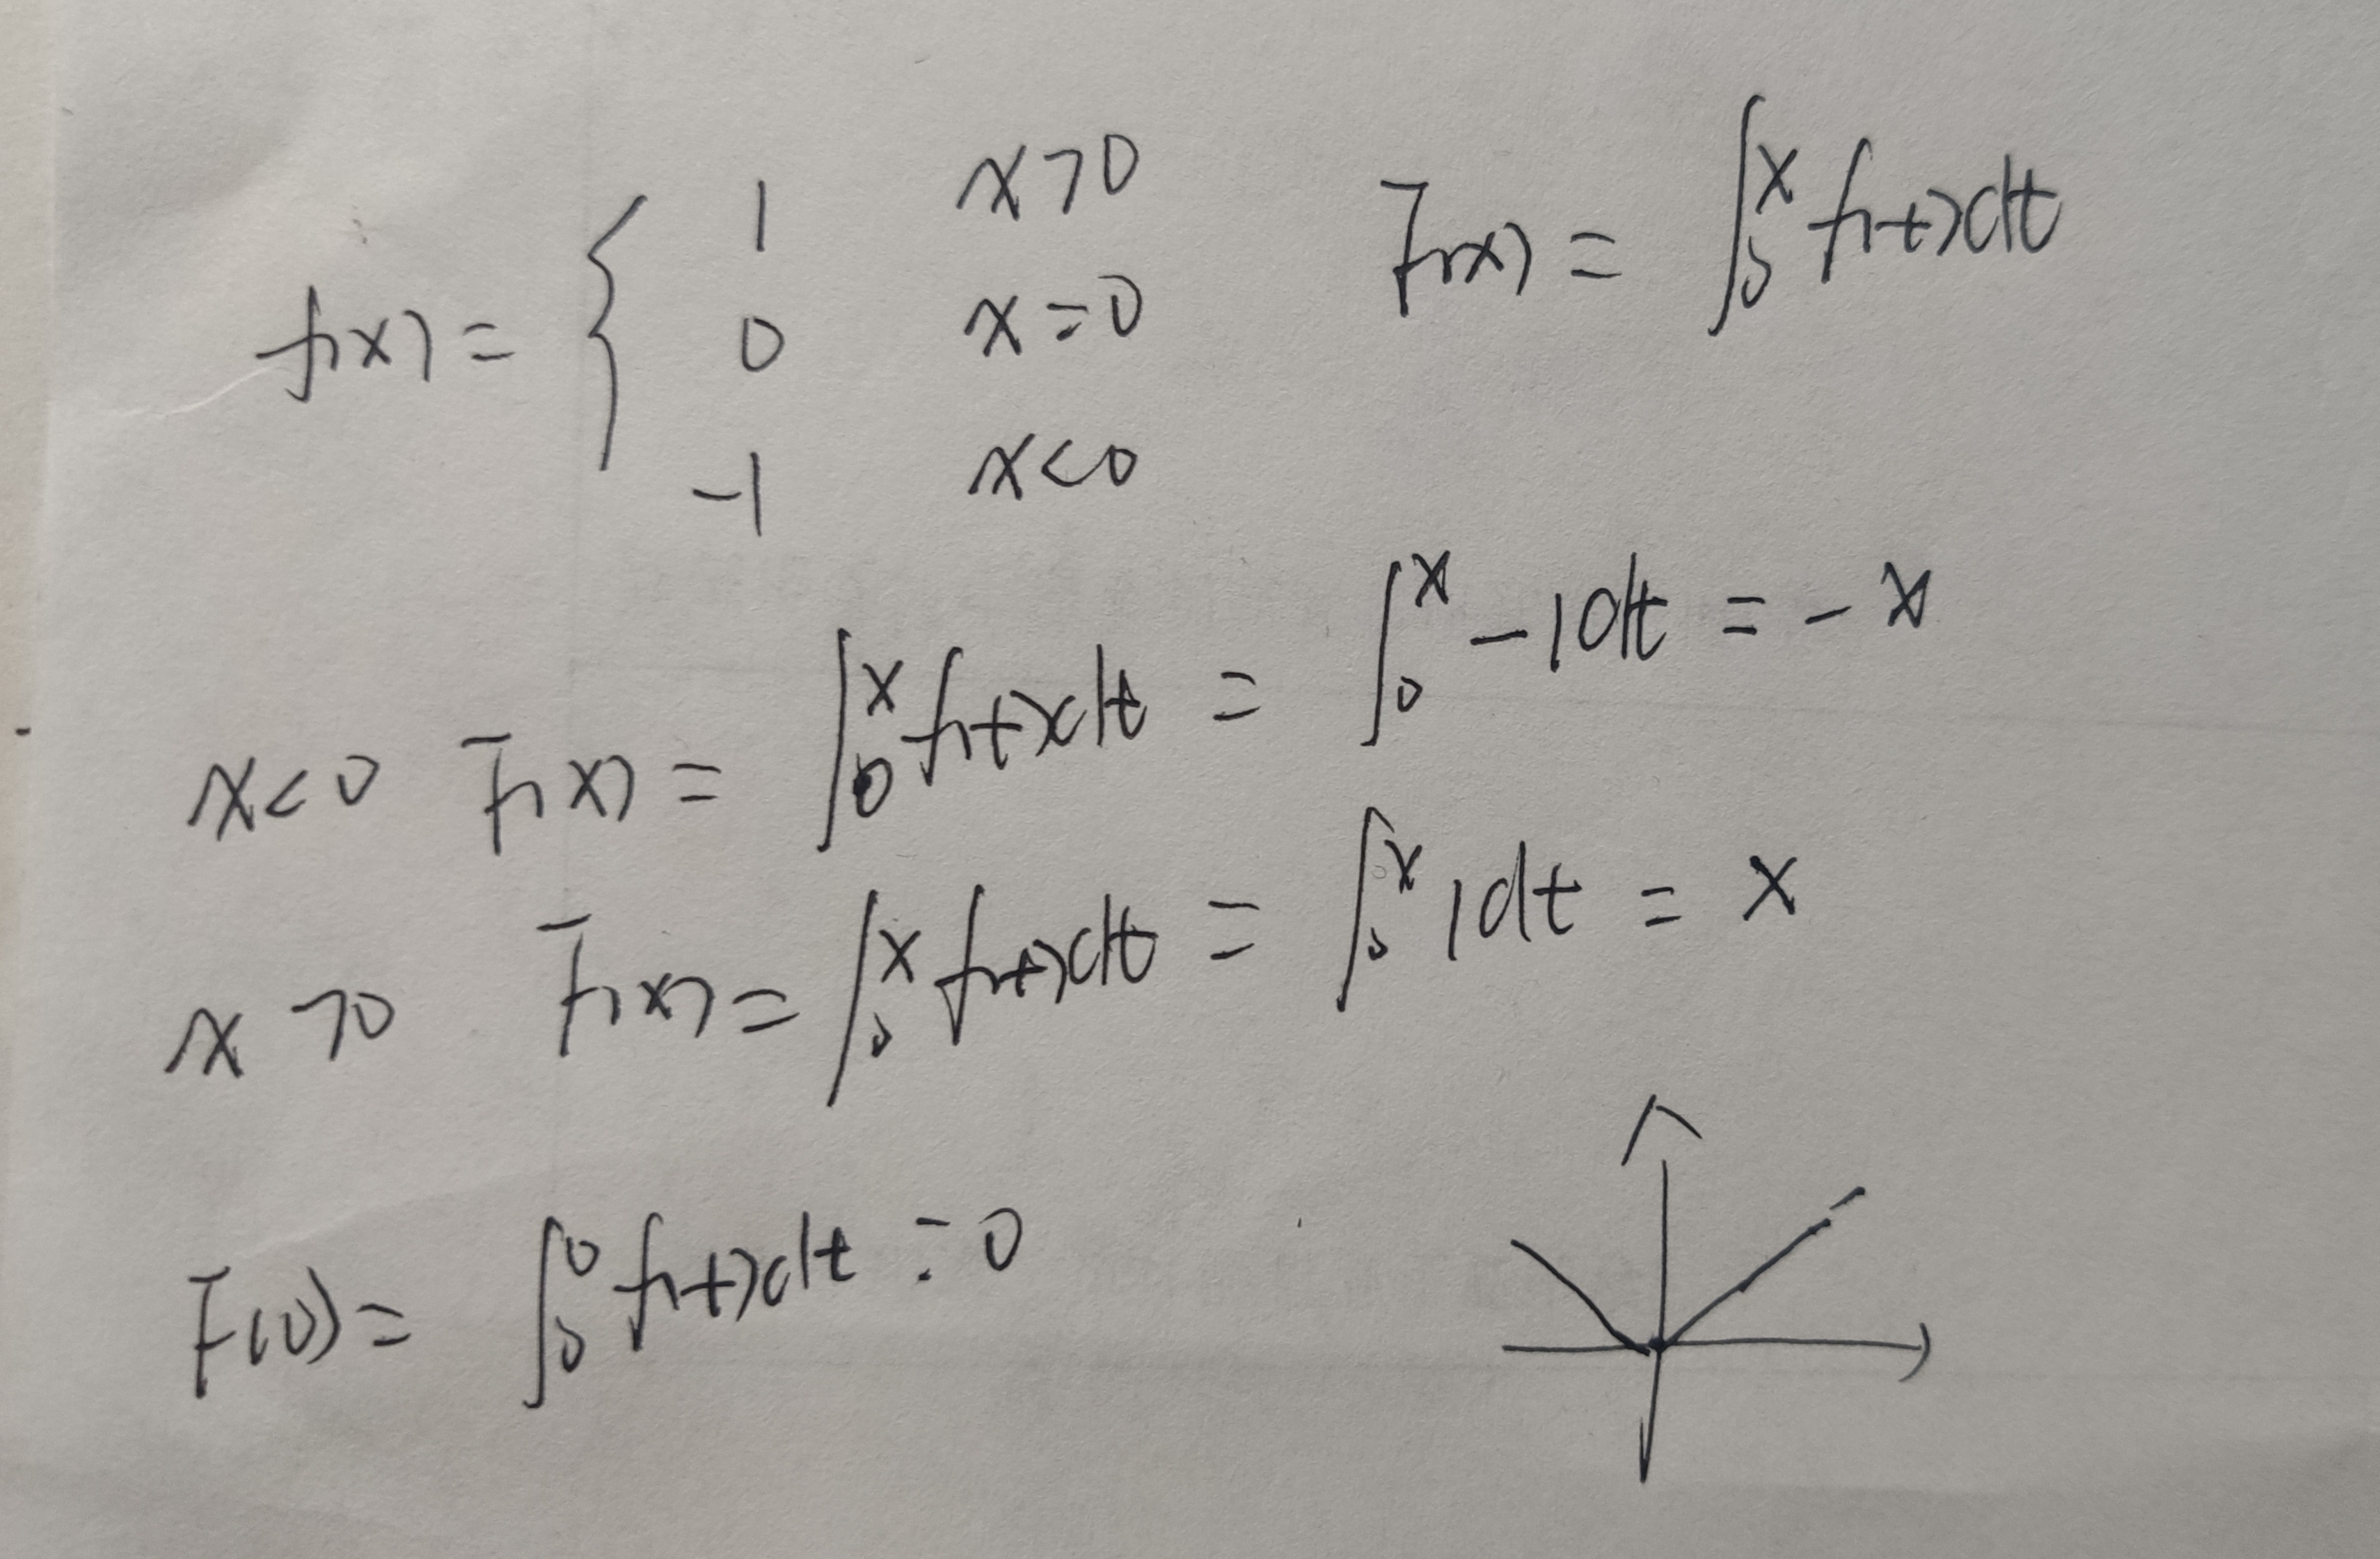 f(x) = { 1 x>0
0 x=0
-1 x<0
F(x) = ∫₀ˣ f(t)dt
x<0 F(x) = ∫₀ˣ f(t)dt = ∫₀ˣ -1dt = -x
x>0 F(x) = ∫₀ˣ f(t)dt = ∫₀ˣ 1dt = x
F(0) = ∫₀⁰ f(t)dt = 0